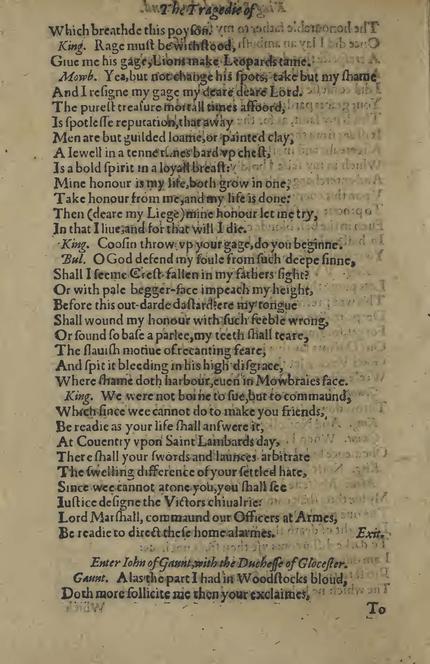 The Tragedie of
Which breathde this poyson.
King. Rage must be withstood,
Giue me his gage, Lions make Leopards tame.
Mowb. Yea, but not change his spots, take but my shame
And I resigne my gage my deare deare Lord.
The purest treasure mortall times affoord,
Is spotlesse reputation, that away
Men are but guilded loame, or painted clay,
A Iewell in a tenne times bard vp chest,
Is a bold spirit in a loyall breast:
Mine honour is my life, both grow in one,
Take honour from me, and my life is done:
Then (deare my Liege) mine honour let me try,
In that I liue, and for that will I die.
King. Coosin throw vp your gage, do you beginne.
Bul. O God defend my soule from such deepe sinne,
Shall I seeme Crest-fallen in my fathers sight?
Or with pale begger-face impeach my height,
Before this out-darde dastard? ere my tongue
Shall wound my honour with such feeble wrong,
Or sound so base a parlee, my teeth shall teare,
The slauish motiue of recanting feare,
And spit it bleeding in his high disgrace,
Where shame doth harbour, euen in Mowbraies face.
King. We were not borne to sue, but to commaund,
Which since wee cannot do to make you friends,
Be readie as your life shall answere it,
At Couentry vpon Saint Lambards day,
There shall your swords and launces arbitrate
The swelling difference of your settled hate,
Since wee cannot atone you, you shall see
Iustice designe the Victors chiualrie.
Lord Marshall, commaund our Officers at Armes,
Be readie to direct these home alarmes. Exit.
Enter Iohn of Gaunt, with the Duchesse of Glocester.
Gaunt. Alas the part I had in Woodstocks bloud,
Doth more sollicite me then your exclaimes,
To